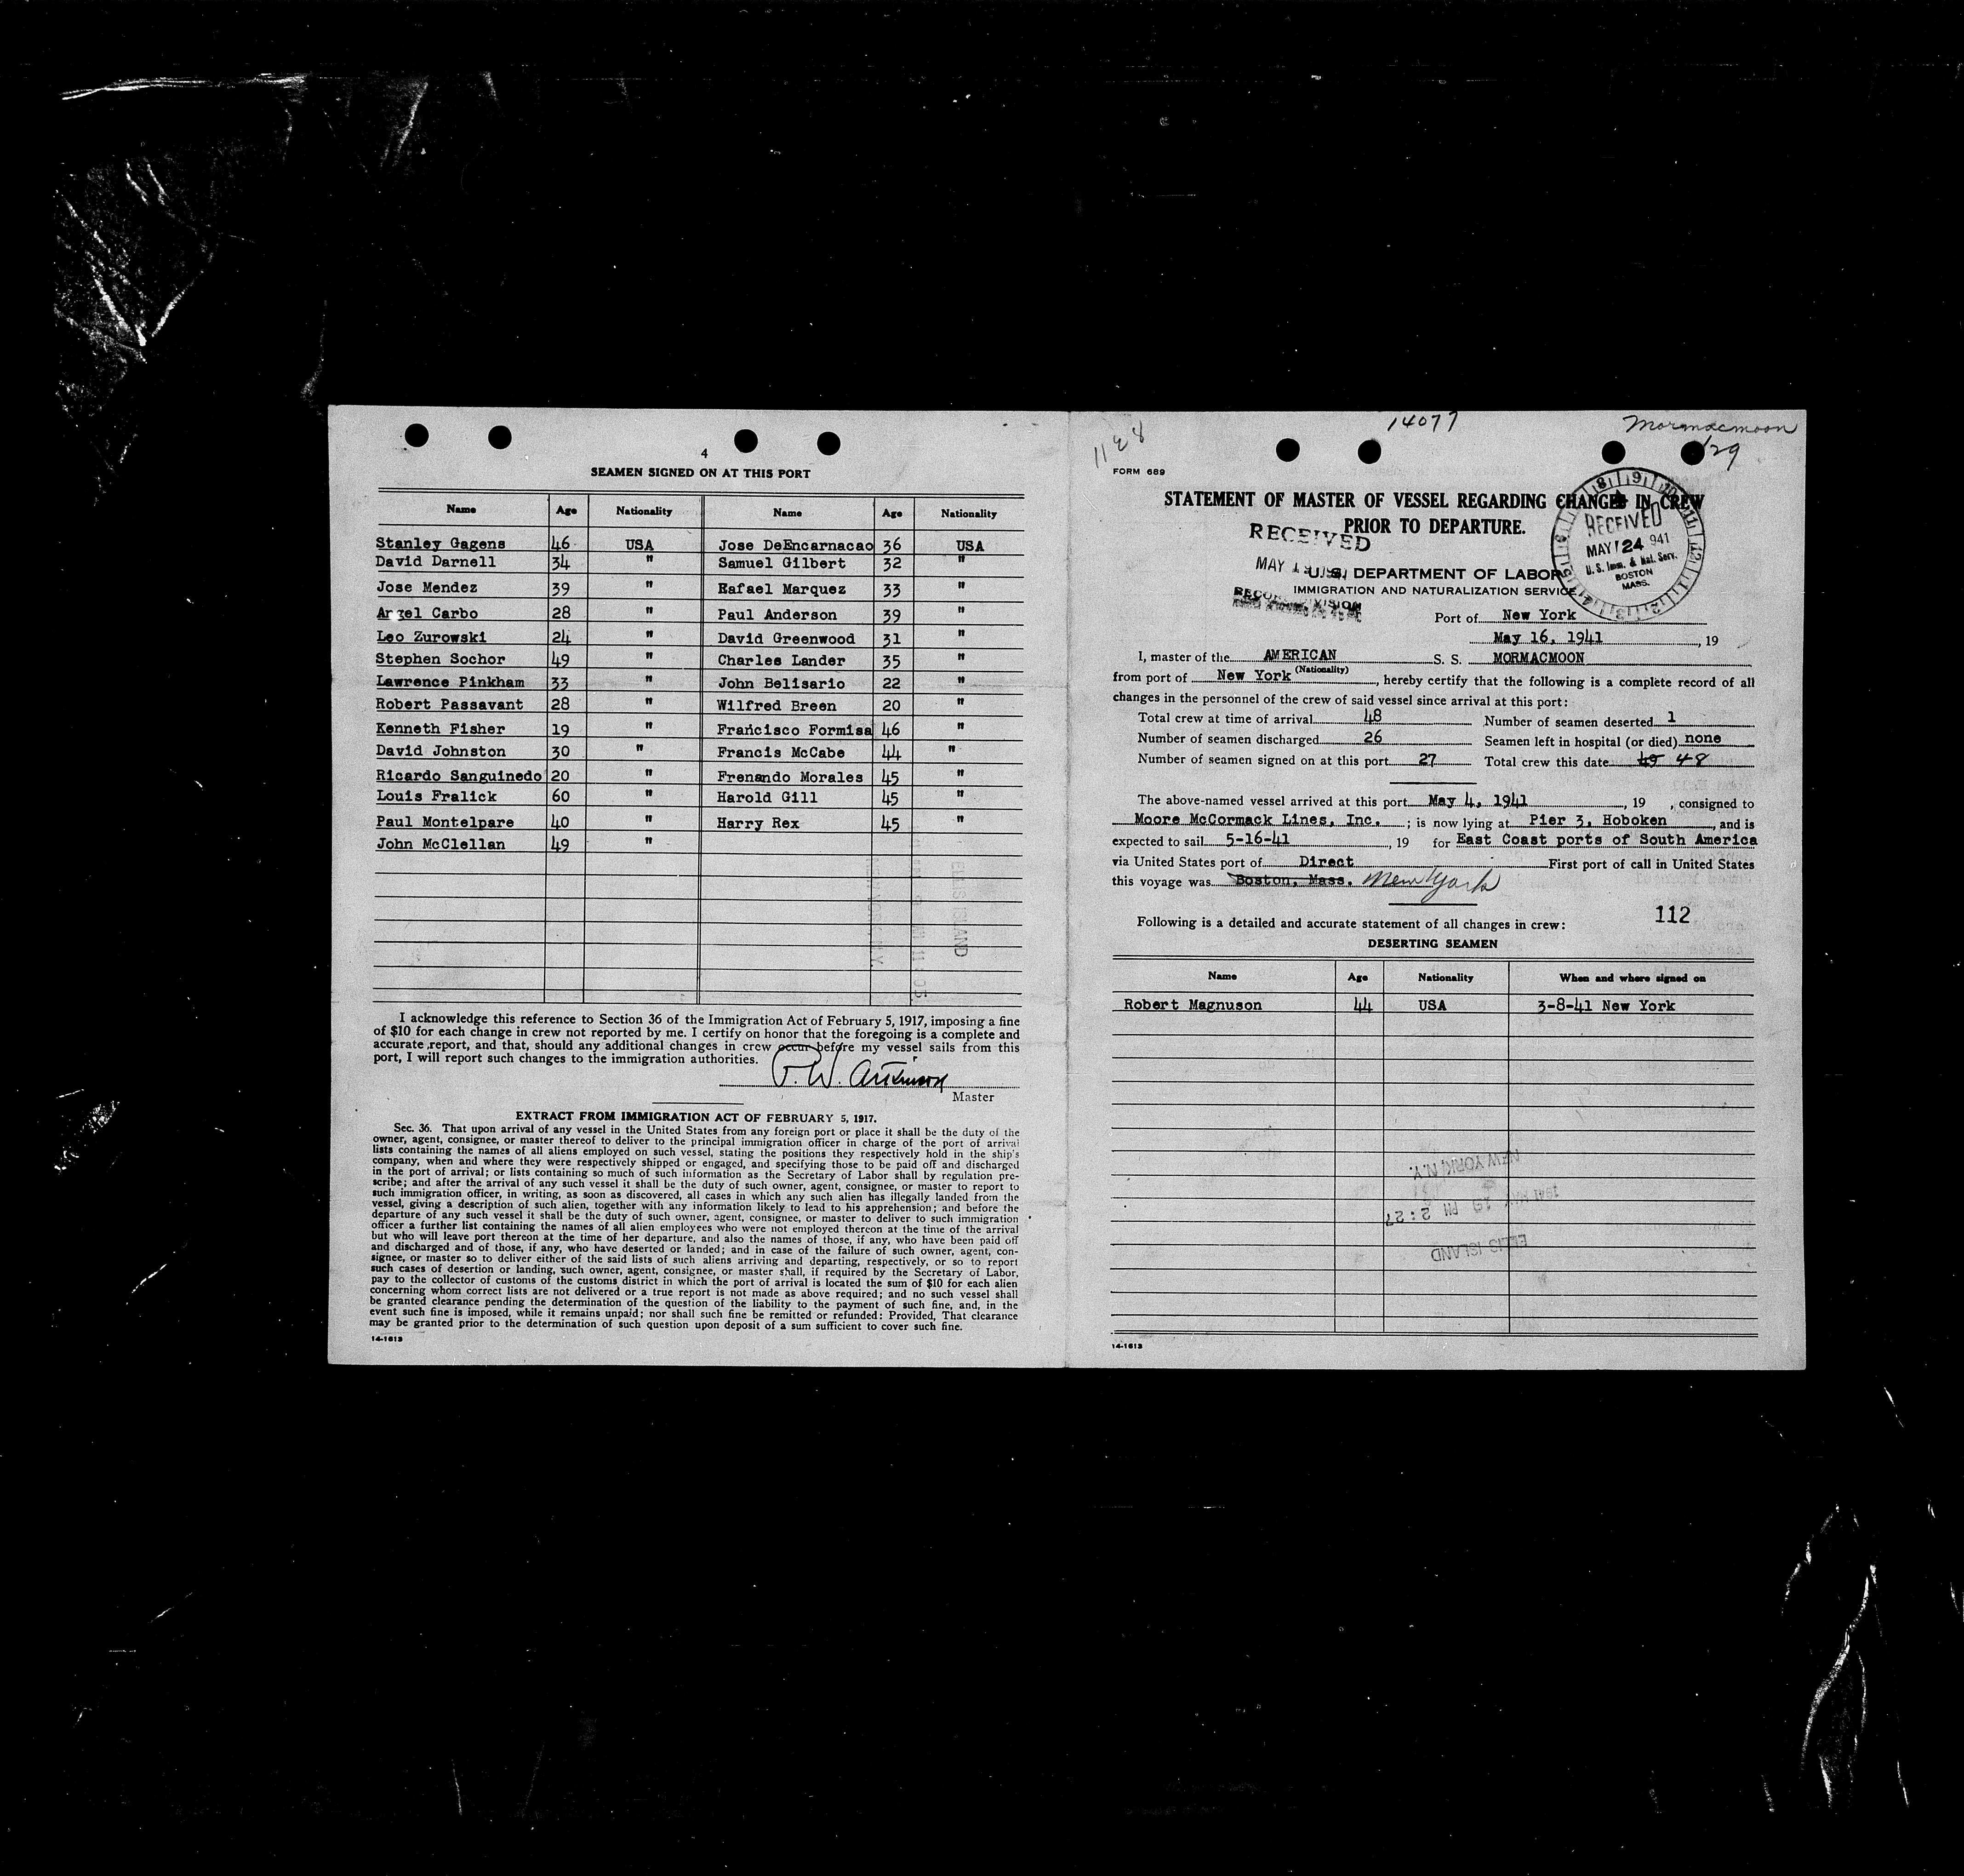 4
SEAMEN SIGNED ON AT THIS PORT
Name Age Nationality Name Age Nationality
Stanley Gagens 46 USA Jose DeEncarnacao 36 USA
David Darnell 34 " Samuel Gilbert 32 "
Jose Mendez 39 " Rafael Marquez 33 "
Angel Carbo 28 " Paul Anderson 39 "
Leo Zurowski 24 " David Greenwood 31 "
Stephen Sochor 49 " Charles Lander 35 "
Lawrence Pinkham 33 " John Belisario 22 "
Robert Passavant 28 " Wilfred Breen 20 "
Kenneth Fisher 19 " Francisco Formisa 46 "
David Johnston 30 " Francis McCabe 44 "
Ricardo Sanguinedo 20 " Frenando Morales 45 "
Louis Fralick 60 " Harold Gill 45 "
Paul Montelpare 40 " Harry Rex 45 "
John McClellan 49 "
ELLIS ISLAND
I acknowledge this reference to Section 36 of the Immigration Act of February 5, 1917, imposing a fine
of $10 for each change in crew not reported by me. I certify on honor that the foregoing is a complete and
accurate report, and that, should any additional changes in crew occur before my vessel sails from this
port, I will report such changes to the immigration authorities.
Master
EXTRACT FROM IMMIGRATION ACT OF FEBRUARY 5, 1917.
Sec. 36. That upon arrival of any vessel in the United States from any foreign port or place it shall be the duty of the
owner, agent, consignee, or master thereof to deliver to the principal immigration officer in charge of the port of arrival
lists containing the names of all aliens employed on such vessel, stating the positions they respectively hold in the ship's
company, when and where they were respectively shipped or engaged, and specifying those to be paid off and discharged
in the port of arrival; or lists containing so much of such information as the Secretary of Labor shall by regulation pre-
scribe; and after the arrival of any such vessel it shall be the duty of such owner, agent, consignee, or master to report to
such immigration officer, in writing, as soon as discovered, all cases in which any such alien has illegally landed from the
vessel, giving a description of such alien, together with any information likely to lead to his apprehension; and before the
departure of any such vessel it shall be the duty of such owner, agent, consignee, or master to deliver to such immigration
officer a further list containing the names of all alien employees who were not employed thereon at the time of the arrival
but who will leave port thereon at the time of her departure, and also the names of those, if any, who have been paid off
and discharged and of those, if any, who have deserted or landed; and in case of the failure of such owner, agent, con-
signee, or master so to deliver either of the said lists of such aliens arriving and departing, respectively, or so to report
such cases of desertion or landing, such owner, agent, consignee, or master shall, if required by the Secretary of Labor,
pay to the collector of customs of the customs district in which the port of arrival is located the sum of $10 for each alien
concerning whom correct lists are not delivered or a true report is not made as above required; and no such vessel shall
be granted clearance pending the determination of the question of the liability to the payment of such fine, and, in the
event such fine is imposed, while it remains unpaid; nor shall such fine be remitted or refunded: Provided, That clearance
may be granted prior to the determination of such question upon deposit of a sum sufficient to cover such fine.
14-1613
14077
Mormacmoon
29
FORM 689
STATEMENT OF MASTER OF VESSEL REGARDING CHANGES IN CREW
PRIOR TO DEPARTURE.
RECEIVED
RECEIVED
MAY 24 1941
U. S. Imm. & Nat. Serv.
BOSTON
MASS.
U. S. DEPARTMENT OF LABOR
IMMIGRATION AND NATURALIZATION SERVICE
Port of New York
May 16, 1941, 19
I, master of the AMERICAN S. S. MORMACMOON
(Nationality)
from port of New York, hereby certify that the following is a complete record of all
changes in the personnel of the crew of said vessel since arrival at this port:
Total crew at time of arrival 48 Number of seamen deserted 1
Number of seamen discharged 26 Seamen left in hospital (or died) none
Number of seamen signed on at this port 27 Total crew this date 49 48
The above-named vessel arrived at this port May 4, 1941, 19 , consigned to
Moore McCormack Lines, Inc. ; is now lying at Pier 3, Hoboken, and is
expected to sail 5-16-41, 19 for East Coast ports of South America
via United States port of Direct First port of call in United States
this voyage was Boston, Mass. New York
112
Following is a detailed and accurate statement of all changes in crew:
DESERTING SEAMEN
Name Age Nationality When and where signed on
Robert Magnuson 44 USA 3-8-41 New York
NEW YORK, N.Y.
PM 2:27
ELLIS ISLAND
14-1613